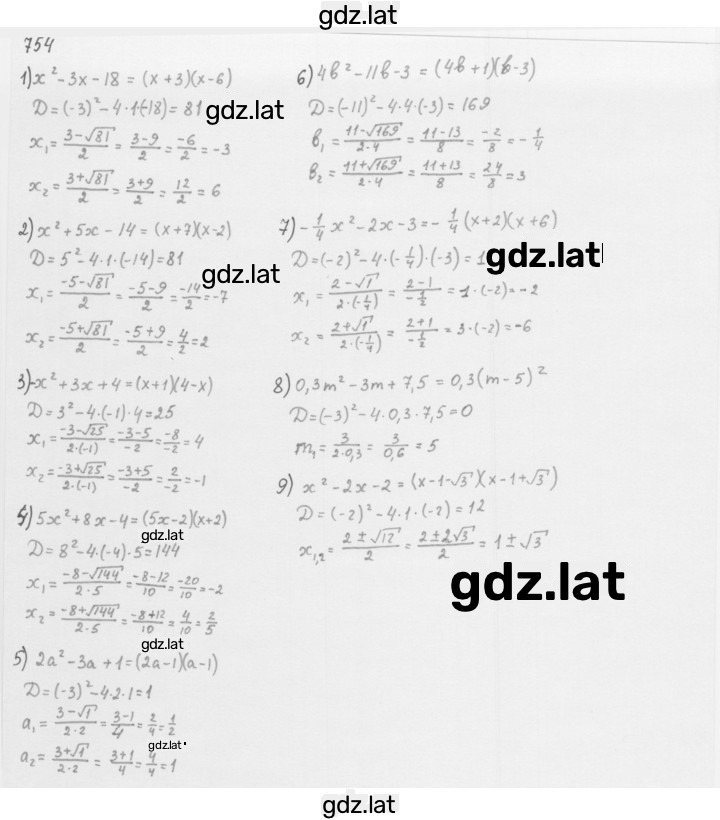 gdz.lat
754
1) x² - 3x - 18 = (x + 3)(x - 6)
D = (-3)² - 4·1·(-18) = 81
gdz.lat
x₁ = (3-√81)/2 = (3-9)/2 = -6/2 = -3
x₂ = (3+√81)/2 = (3+9)/2 = 12/2 = 6
2) x² + 5x - 14 = (x+7)(x-2)
D = 5² - 4·1·(-14) = 81
gdz.lat
x₁ = (-5-√81)/2 = (-5-9)/2 = -14/2 = -7
x₂ = (-5+√81)/2 = (-5+9)/2 = 4/2 = 2
3) -x² + 3x + 4 = (x+1)(4-x)
D = 3² - 4·(-1)·4 = 25
x₁ = (-3-√25)/(2·(-1)) = (-3-5)/-2 = -8/-2 = 4
x₂ = (-3+√25)/(2·(-1)) = (-3+5)/-2 = 2/-2 = -1
4) 5x² + 8x - 4 = (5x-2)(x+2)
gdz.lat
D = 8² - 4·(-4)·5 = 144
x₁ = (-8-√144)/(2·5) = (-8-12)/10 = -20/10 = -2
x₂ = (-8+√144)/(2·5) = (-8+12)/10 = 4/10 = 2/5
gdz.lat
5) 2a² - 3a + 1 = (2a-1)(a-1)
D = (-3)² - 4·2·1 = 1
a₁ = (3-√1)/(2·2) = (3-1)/4 = 2/4 = 1/2
gdz.lat
a₂ = (3+√1)/(2·2) = (3+1)/4 = 4/4 = 1
6) 4b² - 11b - 3 = (4b+1)(b-3)
D = (-11)² - 4·4·(-3) = 169
b₁ = (11-√169)/(2·4) = (11-13)/8 = -2/8 = -1/4
b₂ = (11+√169)/(2·4) = (11+13)/8 = 24/8 = 3
7) -1/4 x² - 2x - 3 = -1/4 (x+2)(x+6)
D = (-2)² - 4·(-1/4)·(-3) = 1
gdz.lat
x₁ = (2-√1)/(2·(-1/4)) = (2-1)/(-1/2) = 1·(-2) = -2
x₂ = (2+√1)/(2·(-1/4)) = (2+1)/(-1/2) = 3·(-2) = -6
8) 0,3m² - 3m + 7,5 = 0,3(m-5)²
D = (-3)² - 4·0,3·7,5 = 0
m₁ = 3/(2·0,3) = 3/0,6 = 5
9) x² - 2x - 2 = (x-1-√3)(x-1+√3)
D = (-2)² - 4·1·(-2) = 12
x₁,₂ = (2±√12)/2 = (2±2√3)/2 = 1±√3
gdz.lat
gdz.lat